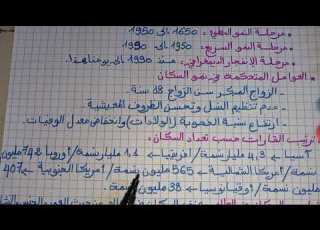 • مرحلة النمو البطيء: 1650 الى 1950
• مرحلة النمو السريع: 1950 الى 1990
• مرحلة الانفجار الديمغرافي: منذ 1990 الى يومنا هذا.
• العوامل المتحكمة في نمو السكان
- الزواج المبكر سن الزواج 18 سنة
- عدم تنظيم النسل وتحسن الظروف المعيشية
- ارتفاع نسبة الخصوبة (الولادات) وانخفاض معدل الوفيات.
ترتيب القارات حسب تعداد السكان:
آسيا ← 4,3 مليار نسمة / افريقيا ← 1,1 مليار نسمة / اوروبا 742 مليون
نسمة / امريكا الشمالية ← 565 مليون نسمة / امريكا الجنوبية ← 407
مليون نسمة / اوقيانوسيا ← 38 مليون نسمة.